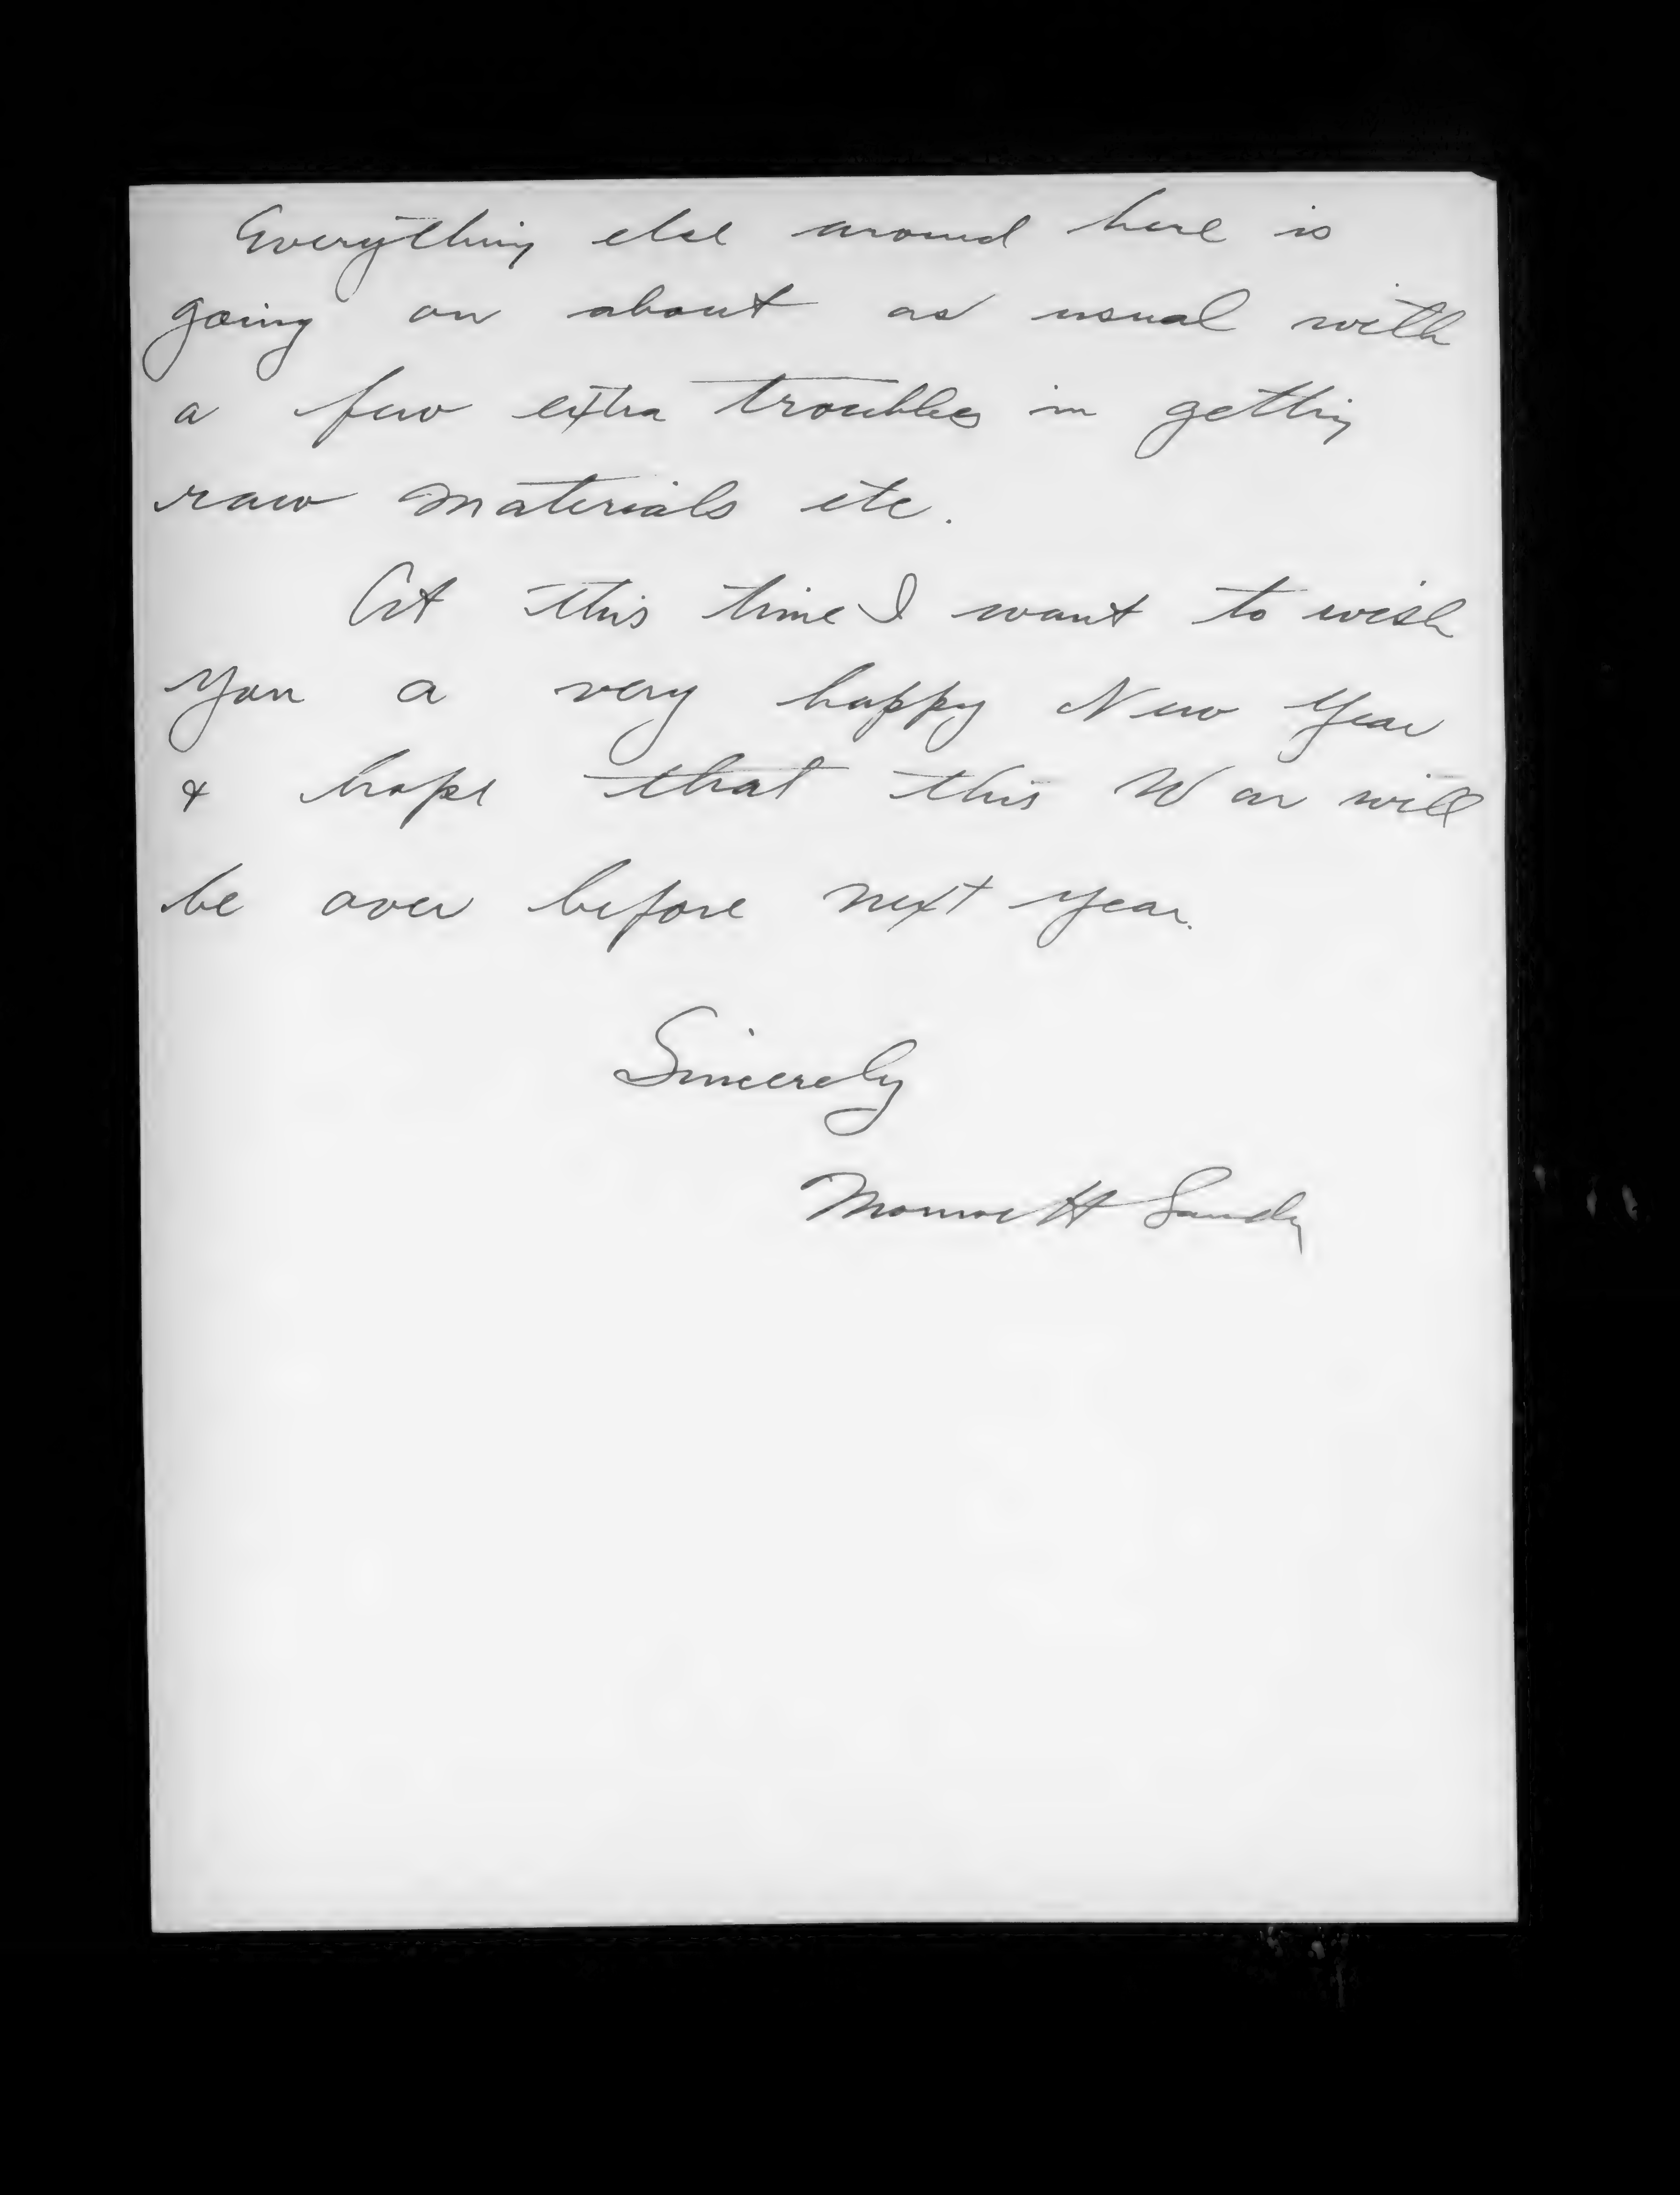 Everything else around here is
going on about as usual with
a few extra troubles in getting
raw materials etc.
At this time I want to wish
you a very happy New Year
& hope that this War will
be over before next year.
Sincerely
Monroe H Sandy